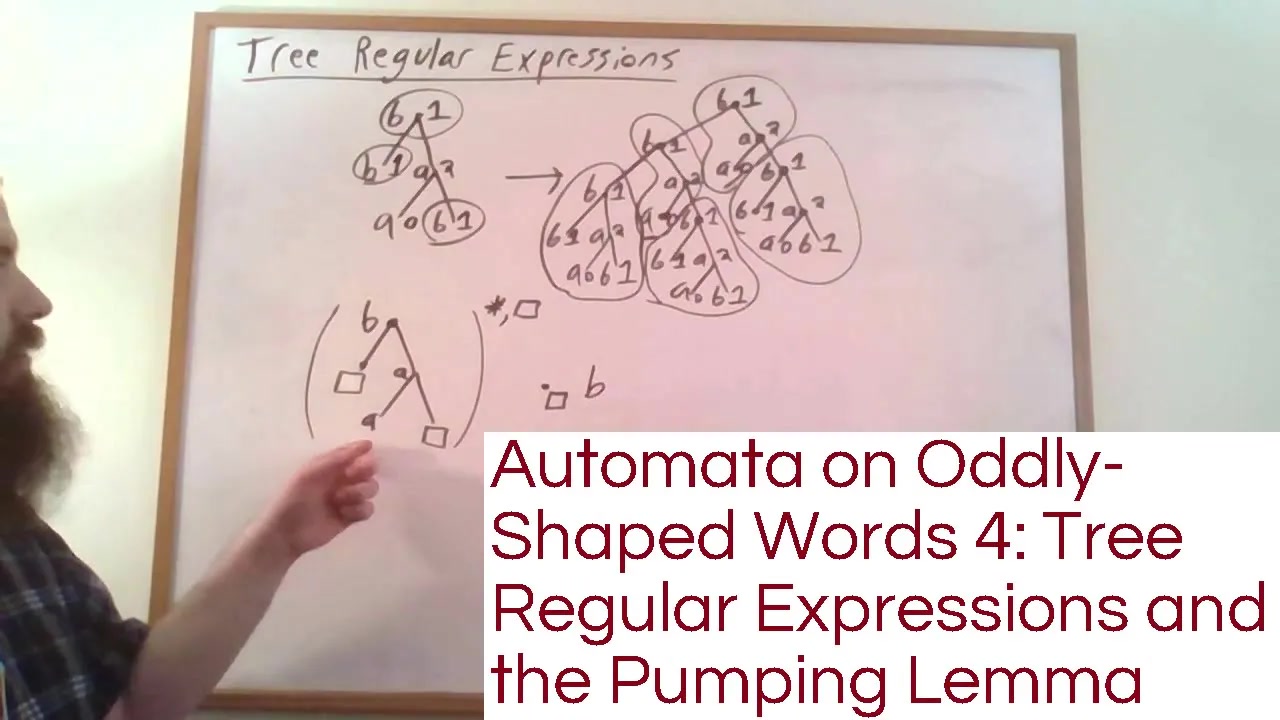 Tree Regular Expressions
b 1
b 1 a 2
a 0 b 1
→
b 1
b 1 a 2
b 1 a 2 a 0 b 1
b 1 a 2 a 0 b 1 b 1 a 2
a 0 b 1 b 1 a 2 a 0 b 1
a 0 b 1
( b ) *, □
□ a
a □
□ b
Automata on Oddly-
Shaped Words 4: Tree
Regular Expressions and
the Pumping Lemma